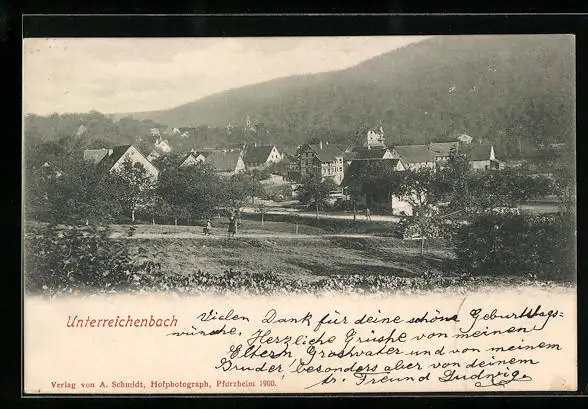 Unterreichenbach
Vielen Dank für deine schöne Geburtstags-
wünsche. Herzliche Grüße von meinen
Eltern, Grosvater und von meinem
Bruder, besonders aber von deinem
tr. Freund Ludwig.
Verlag von A. Schmidt, Hofphotograph, Pforzheim 1900.